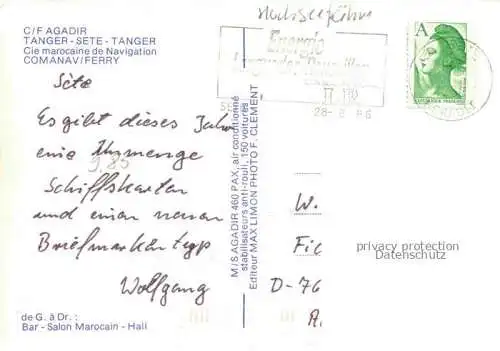 Hochseefähre
C/F AGADIR
TANGER - SETE - TANGER
Cie marocaine de Navigation
COMANAV/FERRY
Energie
28-8 86
A
Sète
Es gibt dieses Jahr
eine Unmenge
9,85
Schiffskarten
und einen neuen
Briefmarkentyp
Wolfgang
M/S AGADIR 460 PAX, air conditionné
stabilisateurs anti-rouli, 150 voitures
Editeur MAX LIMON PHOTO F. CLEMENT
W.
Fic
D-76
privacy protection
Datenschutz
de G. à Dr.:
Bar - Salon Marocain - Hall